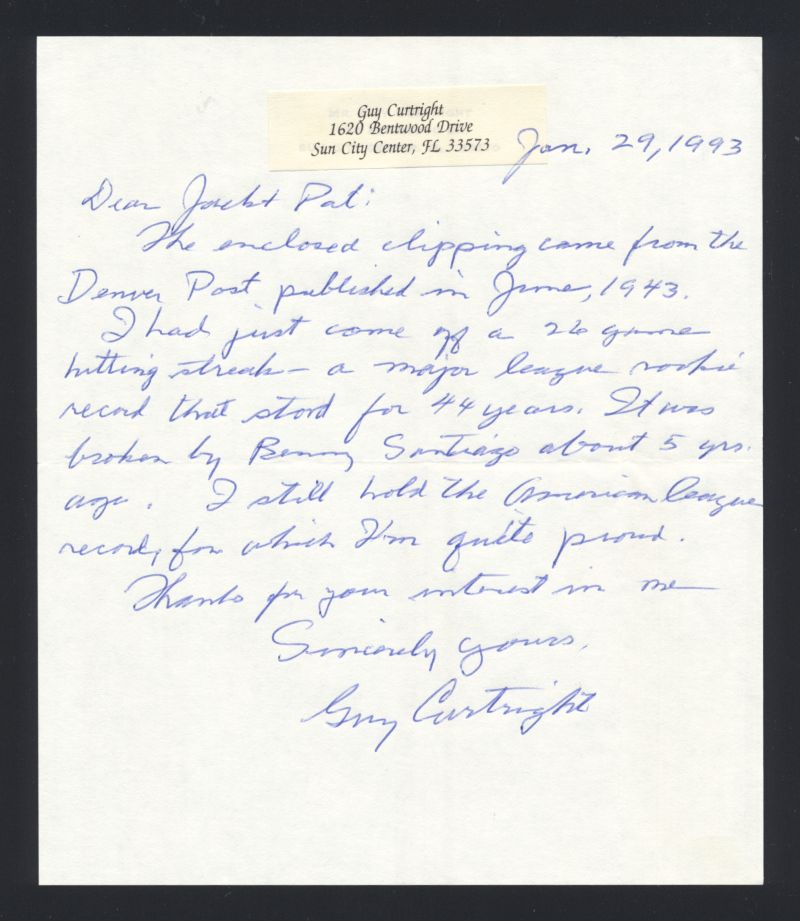 Guy Curtright
1620 Bentwood Drive
Sun City Center, FL 33573
Jan. 29, 1993
Dear Jack + Pat:
The enclosed clipping came from the
Denver Post published in June, 1943.
I had just come off a 26 game
hitting streak - a major league rookie
record that stood for 44 years. It was
broken by Benny Santiago about 5 yrs.
ago. I still hold the American league
record, for which I'm quite proud.
Thanks for your interest in me
Sincerely yours,
Guy Curtright